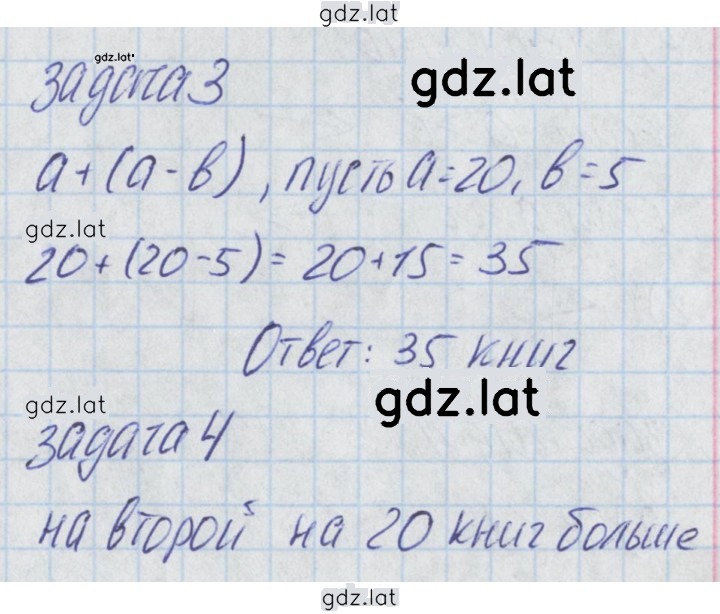 gdz.lat
gdz.lat
задача 3
gdz.lat
а+(а-в), пусть а=20, в=5
gdz.lat
20+(20-5)=20+15=35
Ответ: 35 книг
gdz.lat
gdz.lat
задача 4
на второй на 20 книг больше
gdz.lat